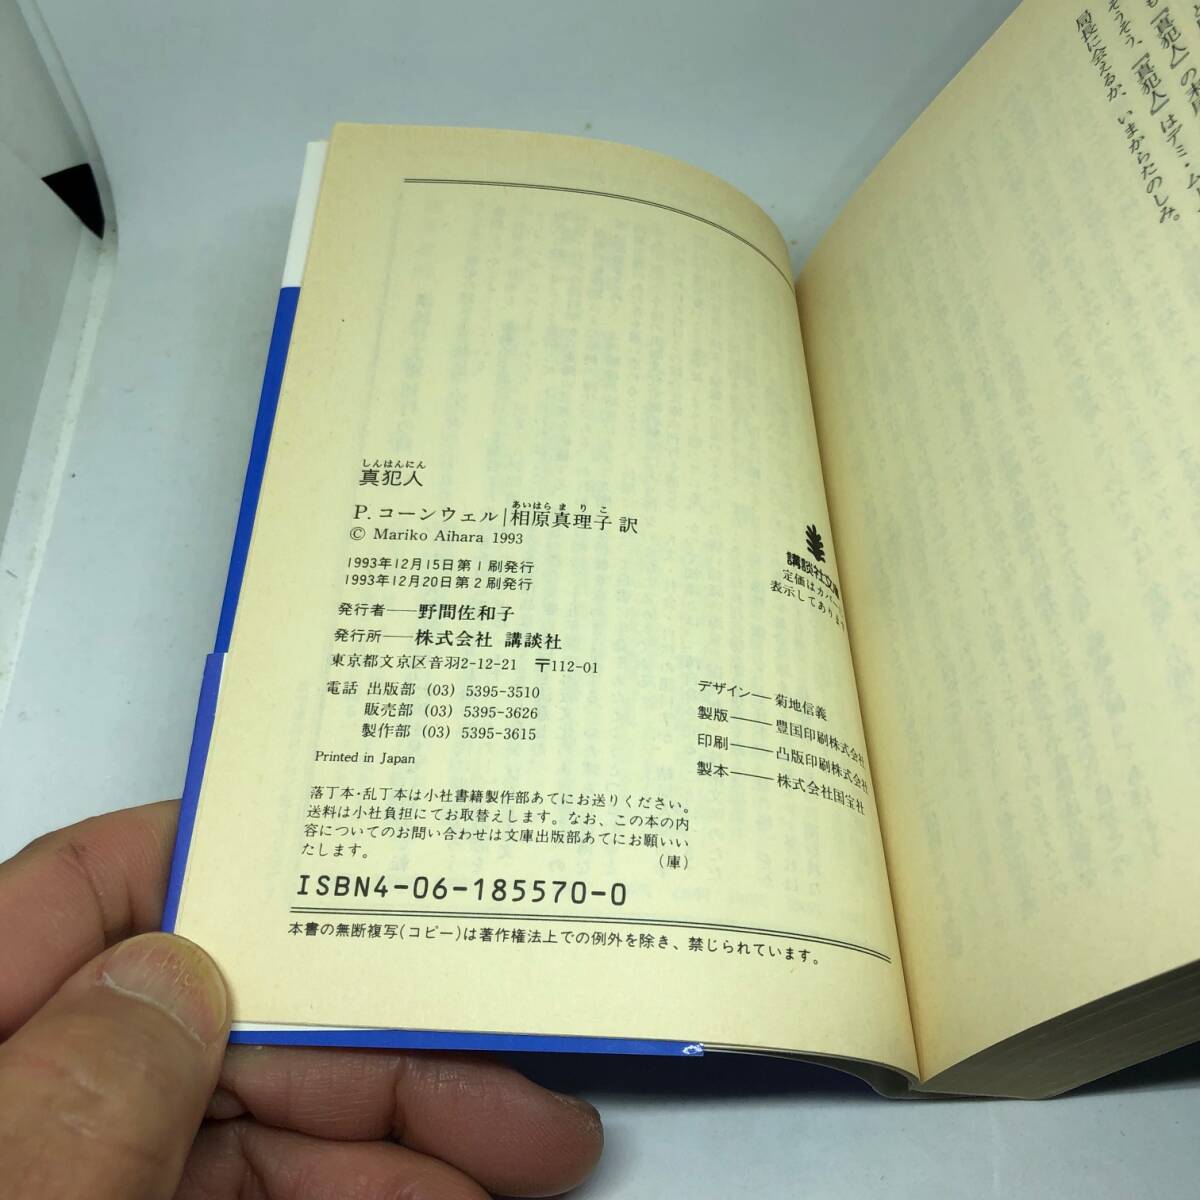 も『真犯人』の
そうそう、『真犯人』はデミ・ム
局長に会えるか、いまからたのしみ。
しんはんにん
真犯人
あいはらまりこ
P. コーンウェル|相原真理子 訳
© Mariko Aihara 1993
1993年12月15日第1刷発行
1993年12月20日第2刷発行
発行者——野間佐和子
発行所——株式会社 講談社
東京都文京区音羽2-12-21 〒112-01
電話 出版部 (03) 5395-3510
販売部 (03) 5395-3626
製作部 (03) 5395-3615
Printed in Japan
講談社文庫
定価はカバーに
表示してあります
デザイン——菊地信義
製版——豊国印刷株式会社
印刷——凸版印刷株式会社
製本——株式会社国宝社
落丁本・乱丁本は小社書籍製作部あてにお送りください。
送料は小社負担にてお取替えします。なお、この本の内
容についてのお問い合わせは文庫出版部あてにお願いい
たします。 (庫)
ISBN4-06-185570-0
本書の無断複写(コピー)は著作権法上での例外を除き、禁じられています。